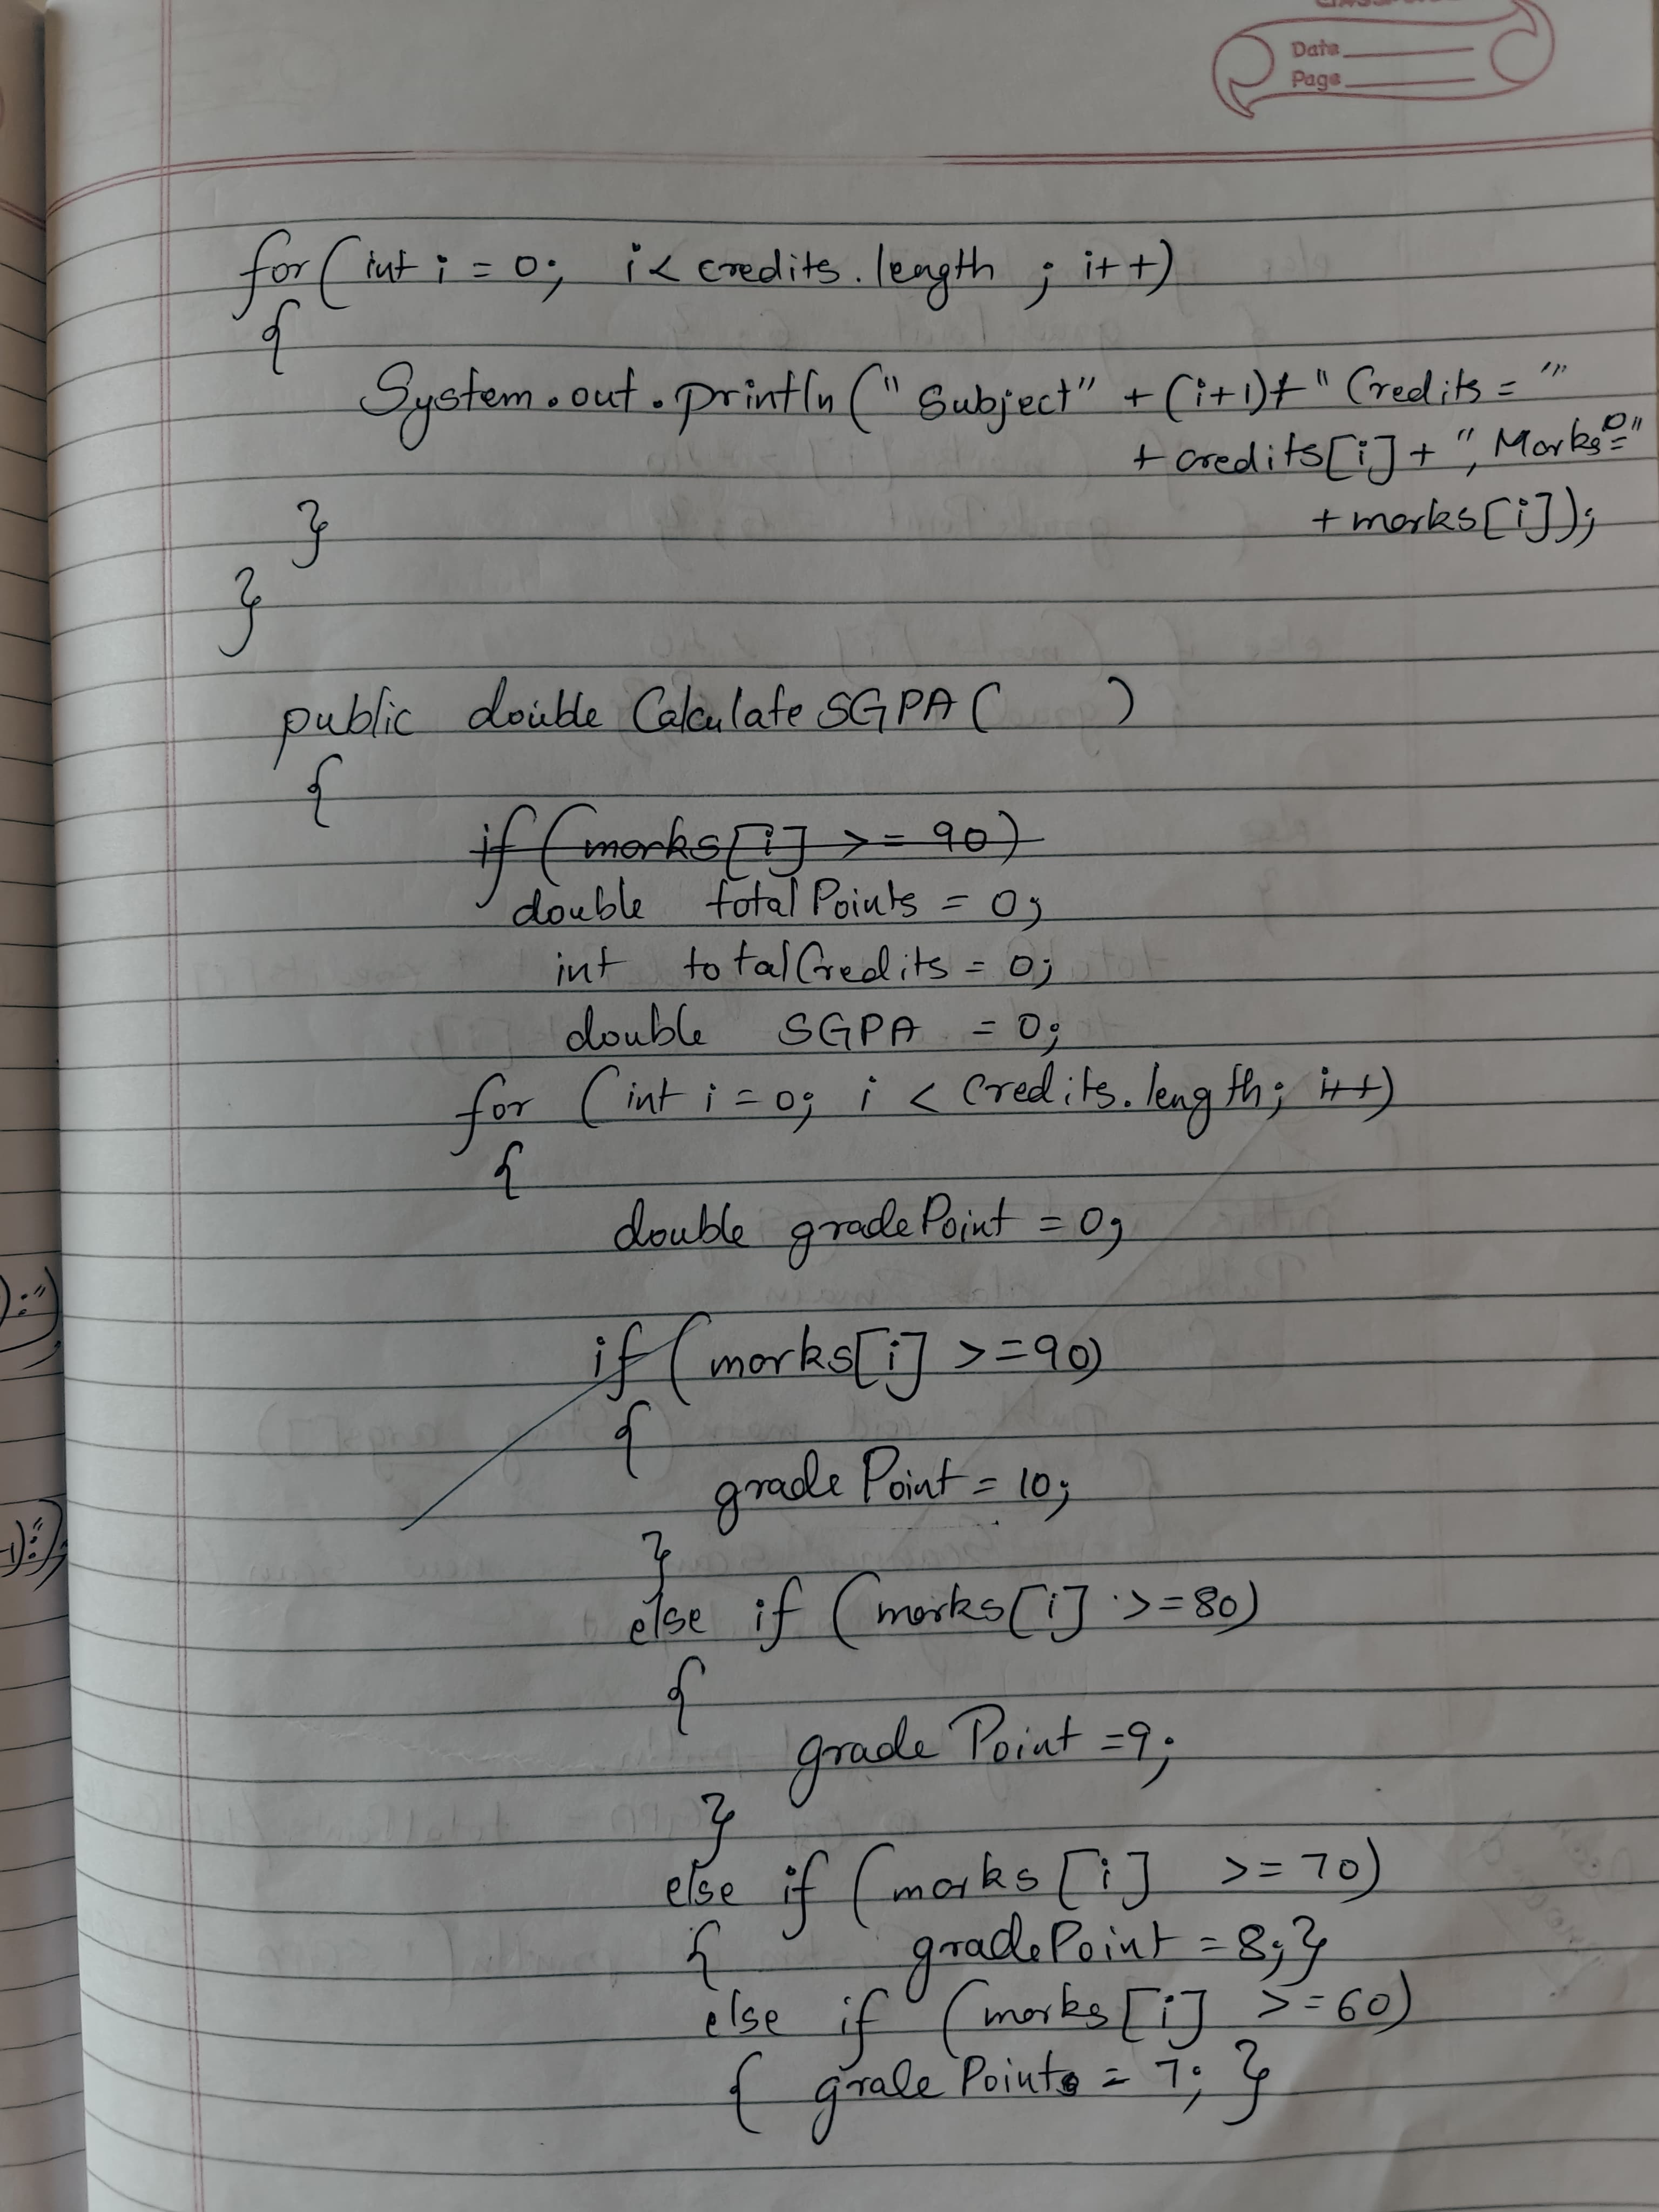 Date
Page
for(int i = 0; i < credits.length ; i++)
{
System.out.println("Subject" + (i+1)+ " Credits = "
+ credits[i] + ", Marks="
+ marks[i]);
}
}
public double CalculateSGPA( )
{
if (marks[i] >= 90)
double totalPoints = 0;
int totalCredits = 0;
double SGPA = 0;
for (int i = 0; i < Credits.length; i++)
{
double gradePoint = 0;
if (marks[i] >=90)
{
gradePoint = 10;
}
else if (marks[i] >=80)
{
gradePoint =9;
}
else if (marks[i] >= 70)
{ gradePoint = 8;}
else if (marks[i] >=60)
{ gralePoint = 7; }